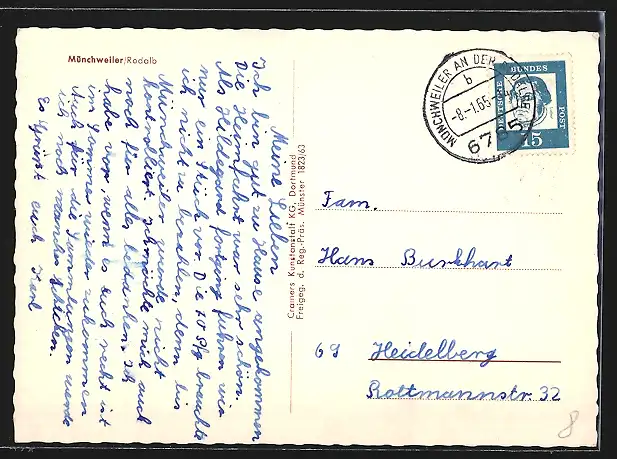 Münchweiler/Rodalb
Meine Lieben
Ich bin gut zu Hause angekommen
Die Heimfahrt war sehr schön.
Als Hildegard fortging fuhren wir
nur ein Stück vor. Die 70 Pfg brauchte
ich nicht zu bezahlen, denn bis
Münchweiler wurde nicht
kontrolliert. Ich möchte mich auch
noch für alles bedanken. Ich
habe vor, wenn es euch recht ist
im Sommer wieder zu kommen
Auch für die Sammlungen werde
ich noch manches schicken.
Es grüßt euch Karl
Cramers Kunstanstalt KG, Dortmund
Freigeg. d. Reg.-Präs. Münster 1823/63
MÜNCHWEILER AN DER RODALB
b
-8.-1.65
6785
DEUTSCHE BUNDESPOST
15
Fam.
Hans Burkhart
69 Heidelberg
Rottmannstr. 32
8